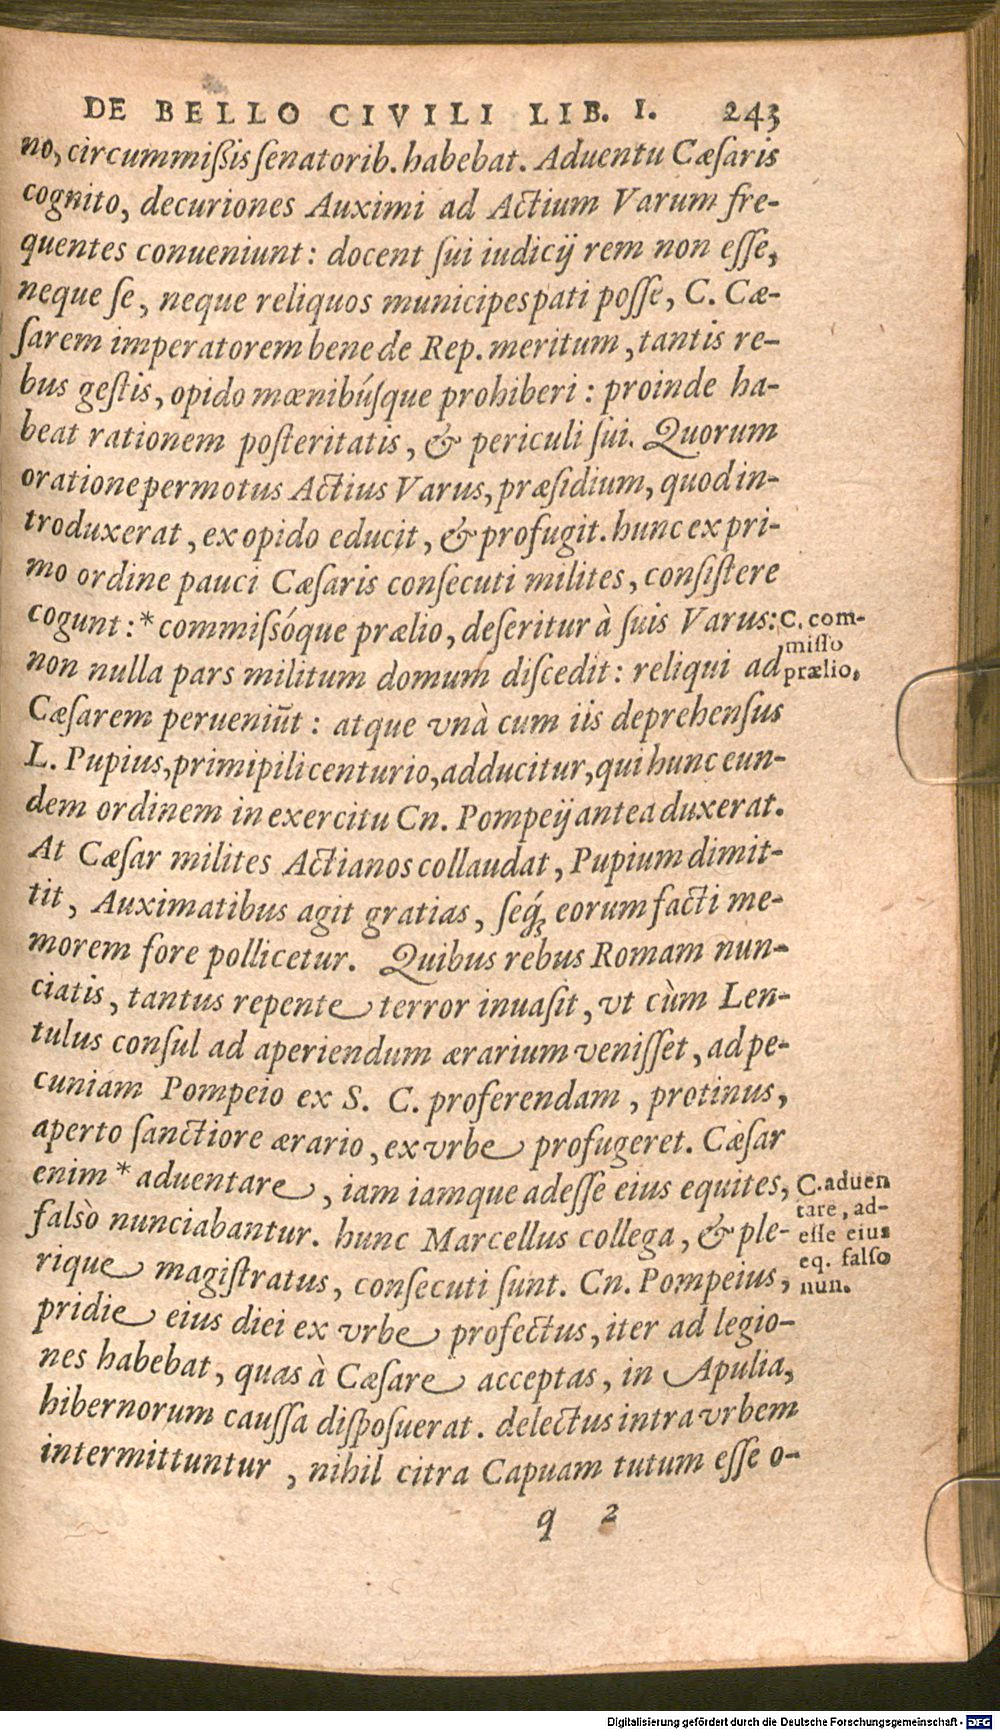 DE BELLO CIVILI LIB. I. 243
no, circummißis ſenatorib. habebat. Aduentu Cæſaris
cognito, decuriones Auximi ad Actium Varum fre-
quentes conueniunt: docent ſui iudicij rem non eſſe,
neque ſe, neque reliquos municipes pati poſſe, C. Cæ-
ſarem imperatorem bene de Rep. meritum, tantis re-
bus geſtis, opido mœnibúſque prohiberi: proinde ha-
beat rationem poſteritatis, & periculi ſui. Quorum
oratione permotus Actius Varus, præſidium, quod in-
troduxerat, ex opido educit, & profugit. hunc ex pri-
mo ordine pauci Cæſaris conſecuti milites, conſiſtere
cogunt: * commiſſóque prælio, deſeritur à ſuis Varus:
non nulla pars militum domum diſcedit: reliqui ad
Cæſarem perueniūt: atque vnà cum iis deprehenſus
L. Pupius, primipili centurio, adducitur, qui hunc eun-
dem ordinem in exercitu Cn. Pompeij antea duxerat.
At Cæſar milites Actianos collaudat, Pupium dimit-
tit, Auximatibus agit gratias, ſeq́ꝫ eorum facti me-
morem fore pollicetur. Quibus rebus Romam nun-
ciatis, tantus repente terror inuaſit, vt cùm Len-
tulus conſul ad aperiendum ærarium veniſſet, ad pe-
cuniam Pompeio ex S. C. proferendam, protinus,
aperto ſanctiore ærario, ex vrbe profugeret. Cæſar
enim * aduentare, iam iamque adeſſe eius equites,
falsò nunciabantur. hunc Marcellus collega, & ple-
rique magiſtratus, conſecuti ſunt. Cn. Pompeius,
pridie eius diei ex vrbe profectus, iter ad legio-
nes habebat, quas à Cæſare acceptas, in Apulia,
hibernorum cauſſa diſpoſuerat. delectus intra vrbem
intermittuntur, nihil citra Capuam tutum eſſe o-
q 2
C. com-
miſſo
prælio,
C. aduen
tare, ad-
eſſe eius
eq. falſo
nun.
Digitalisierung gefördert durch die Deutsche Forschungsgemeinschaft - DFG